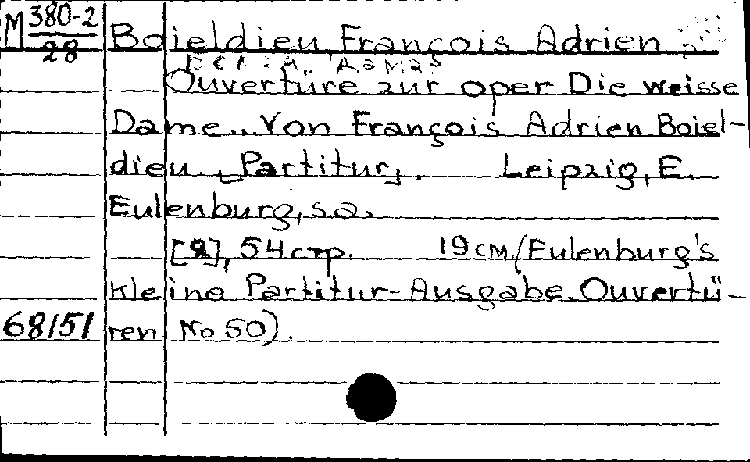 М 380-2
28
Boieldieu, François Adrien
Ouvertüre zur oper Die weisse
Dame.. Von François Adrien Boiel-
dieu. Partitur. Leipzig, E.
Eulenburg, s.a.
[2], 54 стр. 19 см. (Eulenburg's
kleine Partitur-Ausgabe. Ouvertü-
68151 ren No 50).